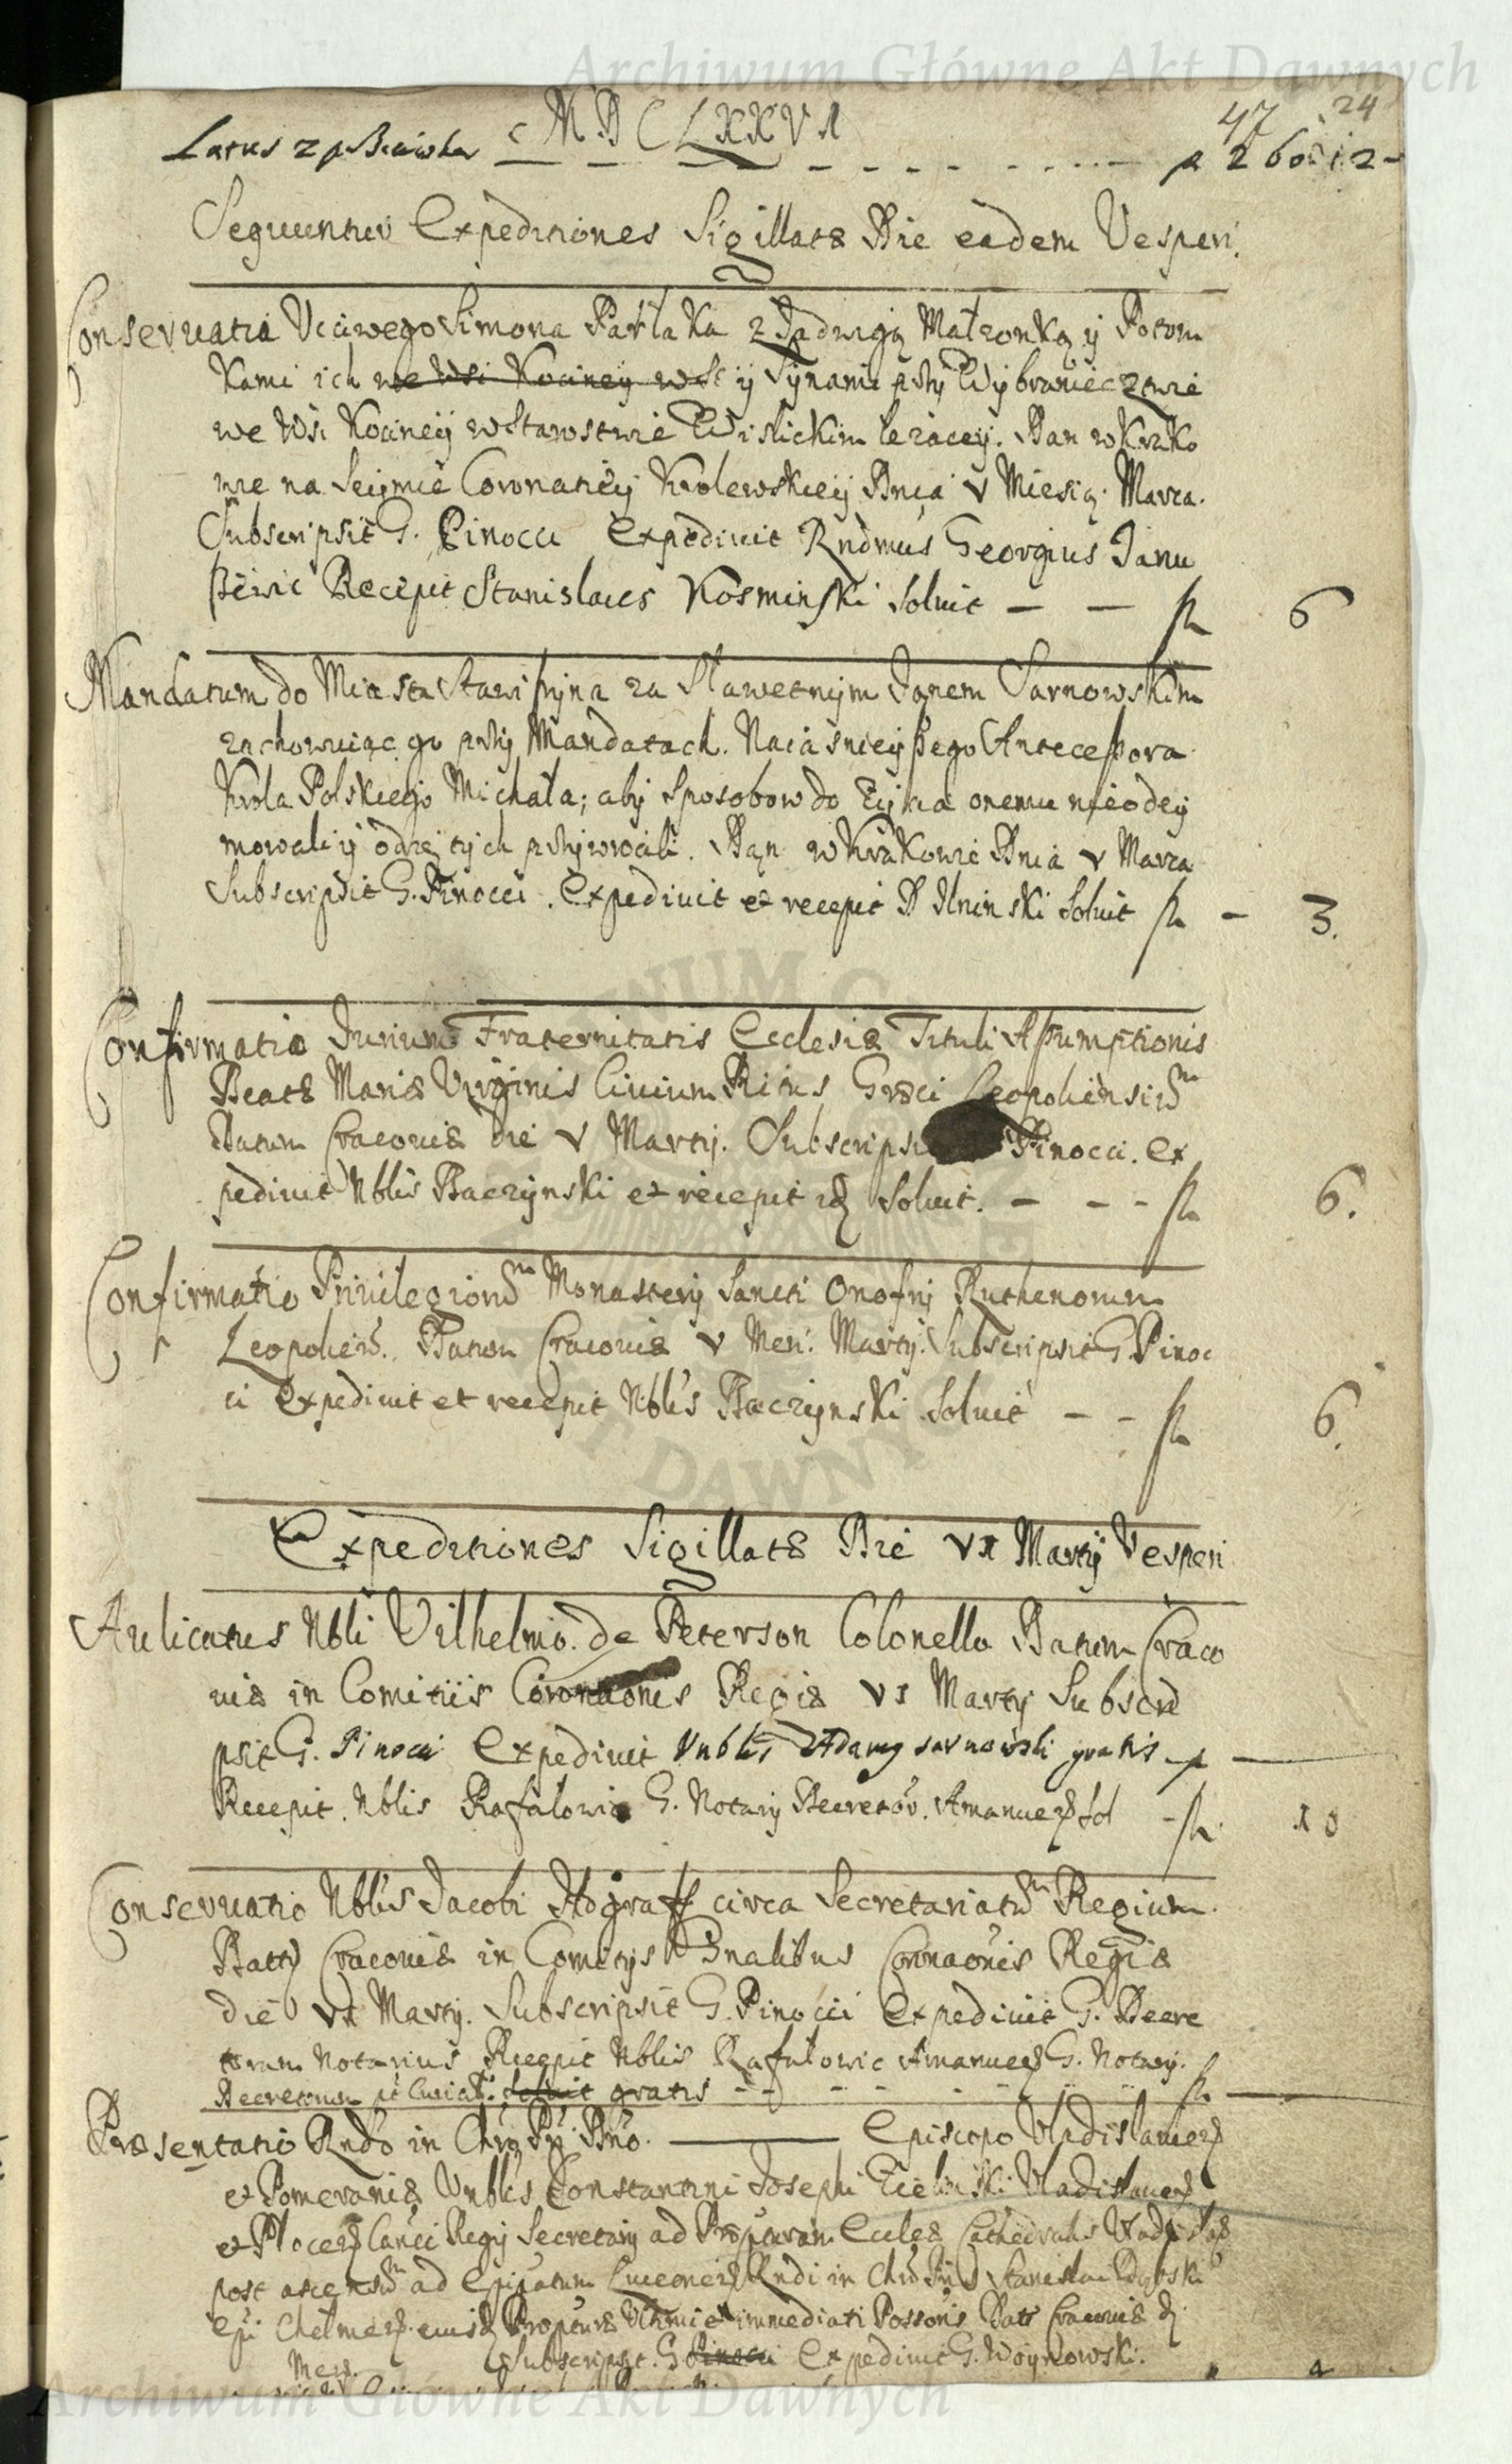 Archiwum Główne Akt Dawnych
47 24
MDCLXXVI
Latus z p
Sequuntur Expeditiones Sigillatæ Die eadem Vesperi.
Conservatia Ucciwego Simona Partaka z Jadwigą Małzonką y Potom
kami ich we Wsi Kociney y Synami przy Wybranieczwie
we Wsi Kociney w Starostwie Wislickim lezacey. Dan w Krako
wie na Seymie Coronatiey Krolewskiey Dnia V Miesią: Marca.
Subscripsit G. Pinocci Expedivit Rndmus Georgius Janu
szewic Recepit Stanislaus Kosminski solvit — — fl 6
Mandatum do Miasta Stawiszyna za Sławetnym Janem Sarnowskim
zachowuiąc go przy Mandatach. Naiasnieyszego Antecessora
Krola Polskiego Michała; aby sposobow do Zycia onemu nieodey
mowali y odziętych przywrocili. Dan w Krakowie Dnia V Marca
Subscripsit G. Pinocci. Expedivit et recepit D Ilninski solvit fl - 3.
Confirmatio Jurium Fraternitatis Ecclesiæ Tituli Assumptionis
Beatæ Mariæ Virginis Civium Ritus Græci Leopoliensium
Datum Cracoviæ die V Martij. Subscripsit Pinocci. Ex
pedivit Nblis Baczynski et recepit id solvit. — - - fl 6.
Confirmatio Privilegiorum Monasterij Sancti Onofrij Ruthenorum
Leopolien. Datum Cracoviæ V Men: Martij. Subscripsit G. Pinoc
ci Expedivit et recepit Nblis Baczynski solvit - - fl 6.
Expeditiones Sigillatæ Die VI Martij Vesperi
Aulicatus Nbli Vilhelmo de Peterson Colonello Datum Craco
viæ in Comitiis Coronaonis Regiæ VI Martij Subscri
psit G. Pinocci Expedivit Vnblis Adamg sarnowski gratis
Recepit. Nblis Rafalowic G. Notarij Decretor. Amanuen sol - fl. 10
Conservatio Nblis Jacobi circa Secretariatum Regium.
Datt Cracoviæ in Comitijs Gnalibus Coronaonis Regiæ
die VI Martij. Subscripsit G. Pinocci Expedivit G. Decre
torum Notarius Recepit Nblis Rafalowic Amanuen G. Notarij.
Decretorum solvit gratis - - fl
Præsentatio Rndo in Chro Pri Dno. — Episcopo Vladislavien
et Pomeraniæ Vnblis Constantini Josephi Zielinski Vladislavien
et Plocen Canci Regij Secretarij ad Præpturam Eccles Cathedralis Vladislas
post ascensum ad Epipatum Luceorien Rndi in Chro Pris Stanislai
Epi Chelmen. eius Præpturæ Vltimi et immediati Possoris Datt Cracoviæ d
Mens. Subscripsit. G Pinocci Expedivit G. Woynowski.
Archiwum Główne Akt Dawnych